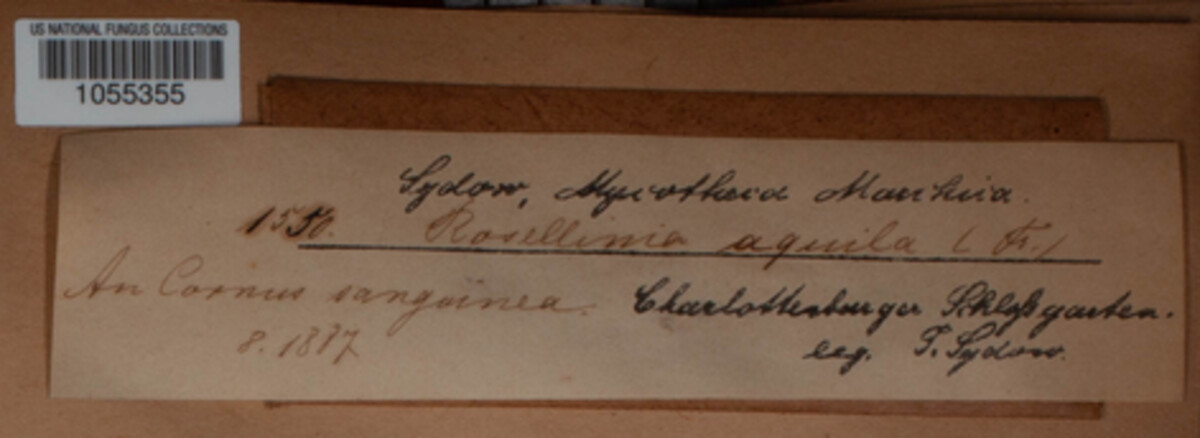 US NATIONAL FUNGUS COLLECTIONS
1055355
Sydow, Mycotheca Marchica.
1550. Rosellinia aquila (Fr.)
An Cornus sanguinea. Charlottenburger Schloßgarten.
8. 1887 leg. P. Sydow.